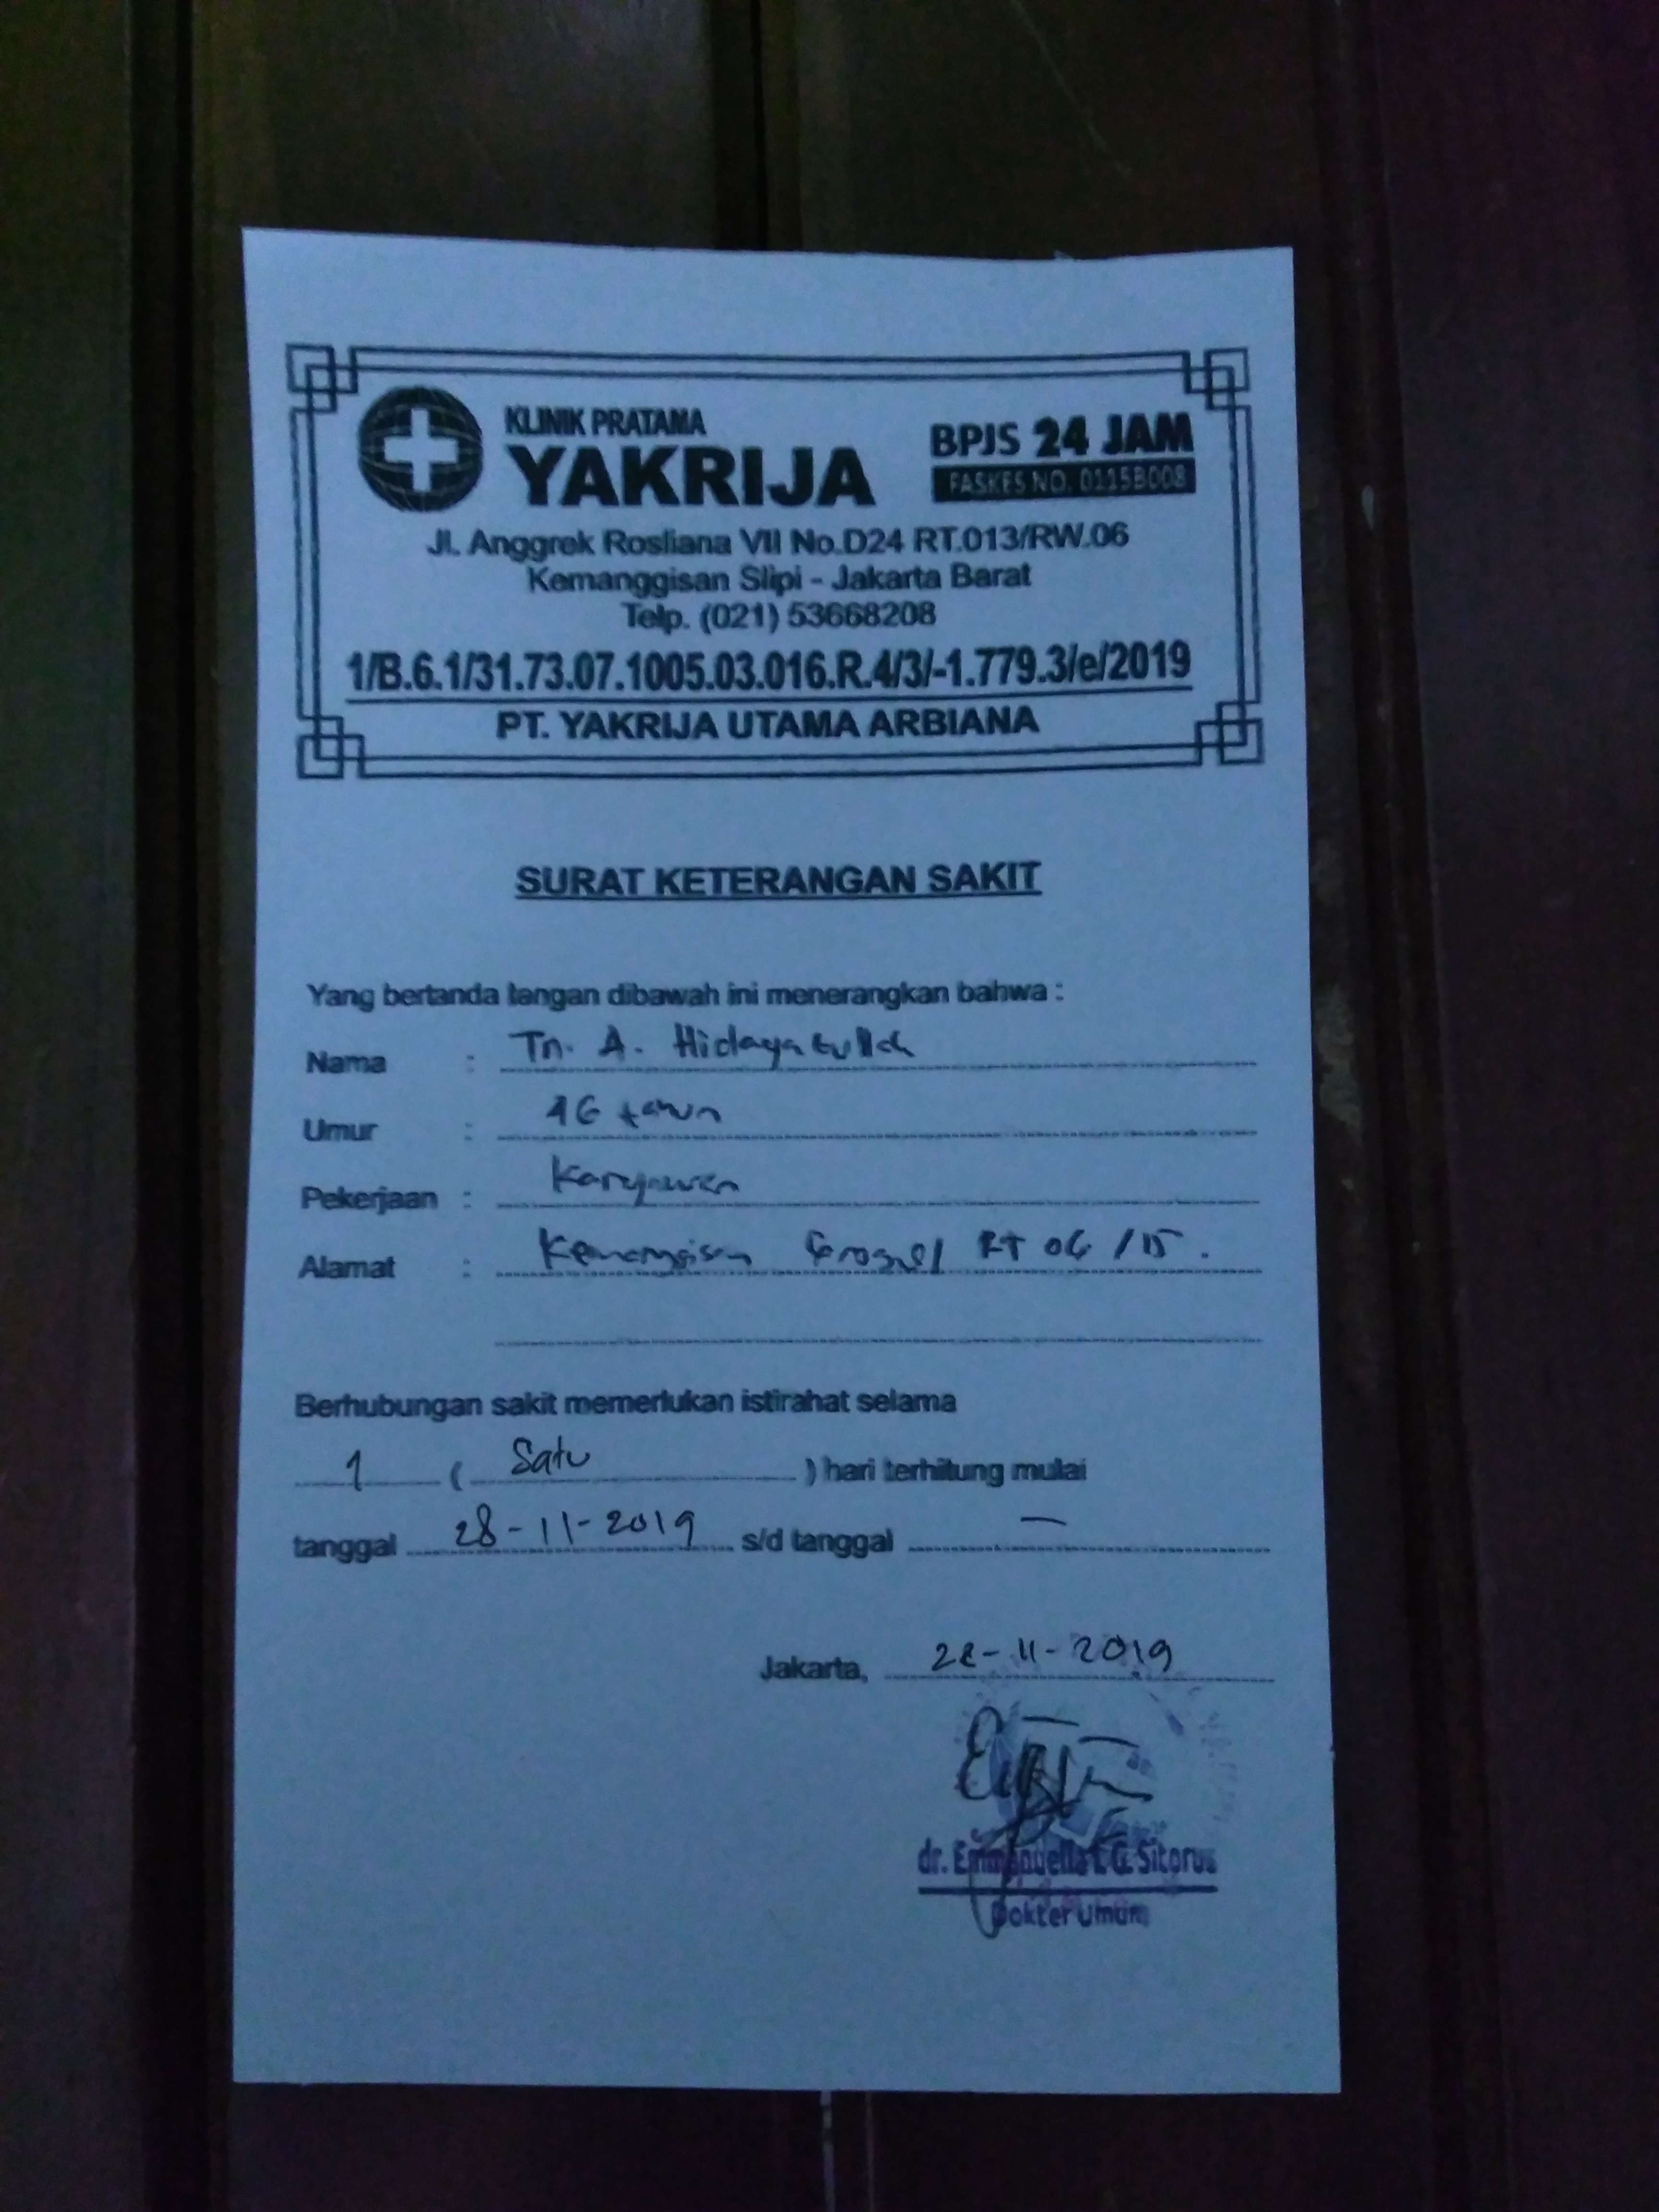 KLINIK PRATAMA
YAKRIJA
BPJS 24 JAM
FASKES NO. 0115B008
Jl. Anggrek Rosliana VII No.D24 RT.013/RW.06
Kemanggisan Slipi - Jakarta Barat
Telp. (021) 53668208
1/B.6.1/31.73.07.1005.03.016.R.4/3/-1.779.3/e/2019
PT. YAKRIJA UTAMA ARBIANA
SURAT KETERANGAN SAKIT
Yang bertanda tangan dibawah ini menerangkan bahwa :
Nama : Tn. A. Hidayatullah
Umur : tahun
Pekerjaan : Karyawan
Alamat : Kemanggisan RT 06 / 15.
Berhubungan sakit memerlukan istirahat selama
1 ( Satu ) hari terhitung mulai
tanggal 28-11-2019 s/d tanggal —
Jakarta, 28-11-2019
dr. Emmanuella G. Sitorus
Dokter Umum